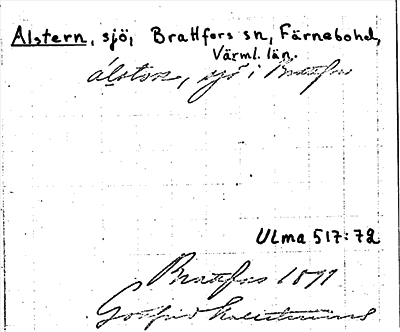 Alstern, sjö, Brattfors sn, Färnebohd,
Värml. län.
sjö i Brattfors
ULMA 517:72
Brattfors 1899
Gottfrid Kallstenius